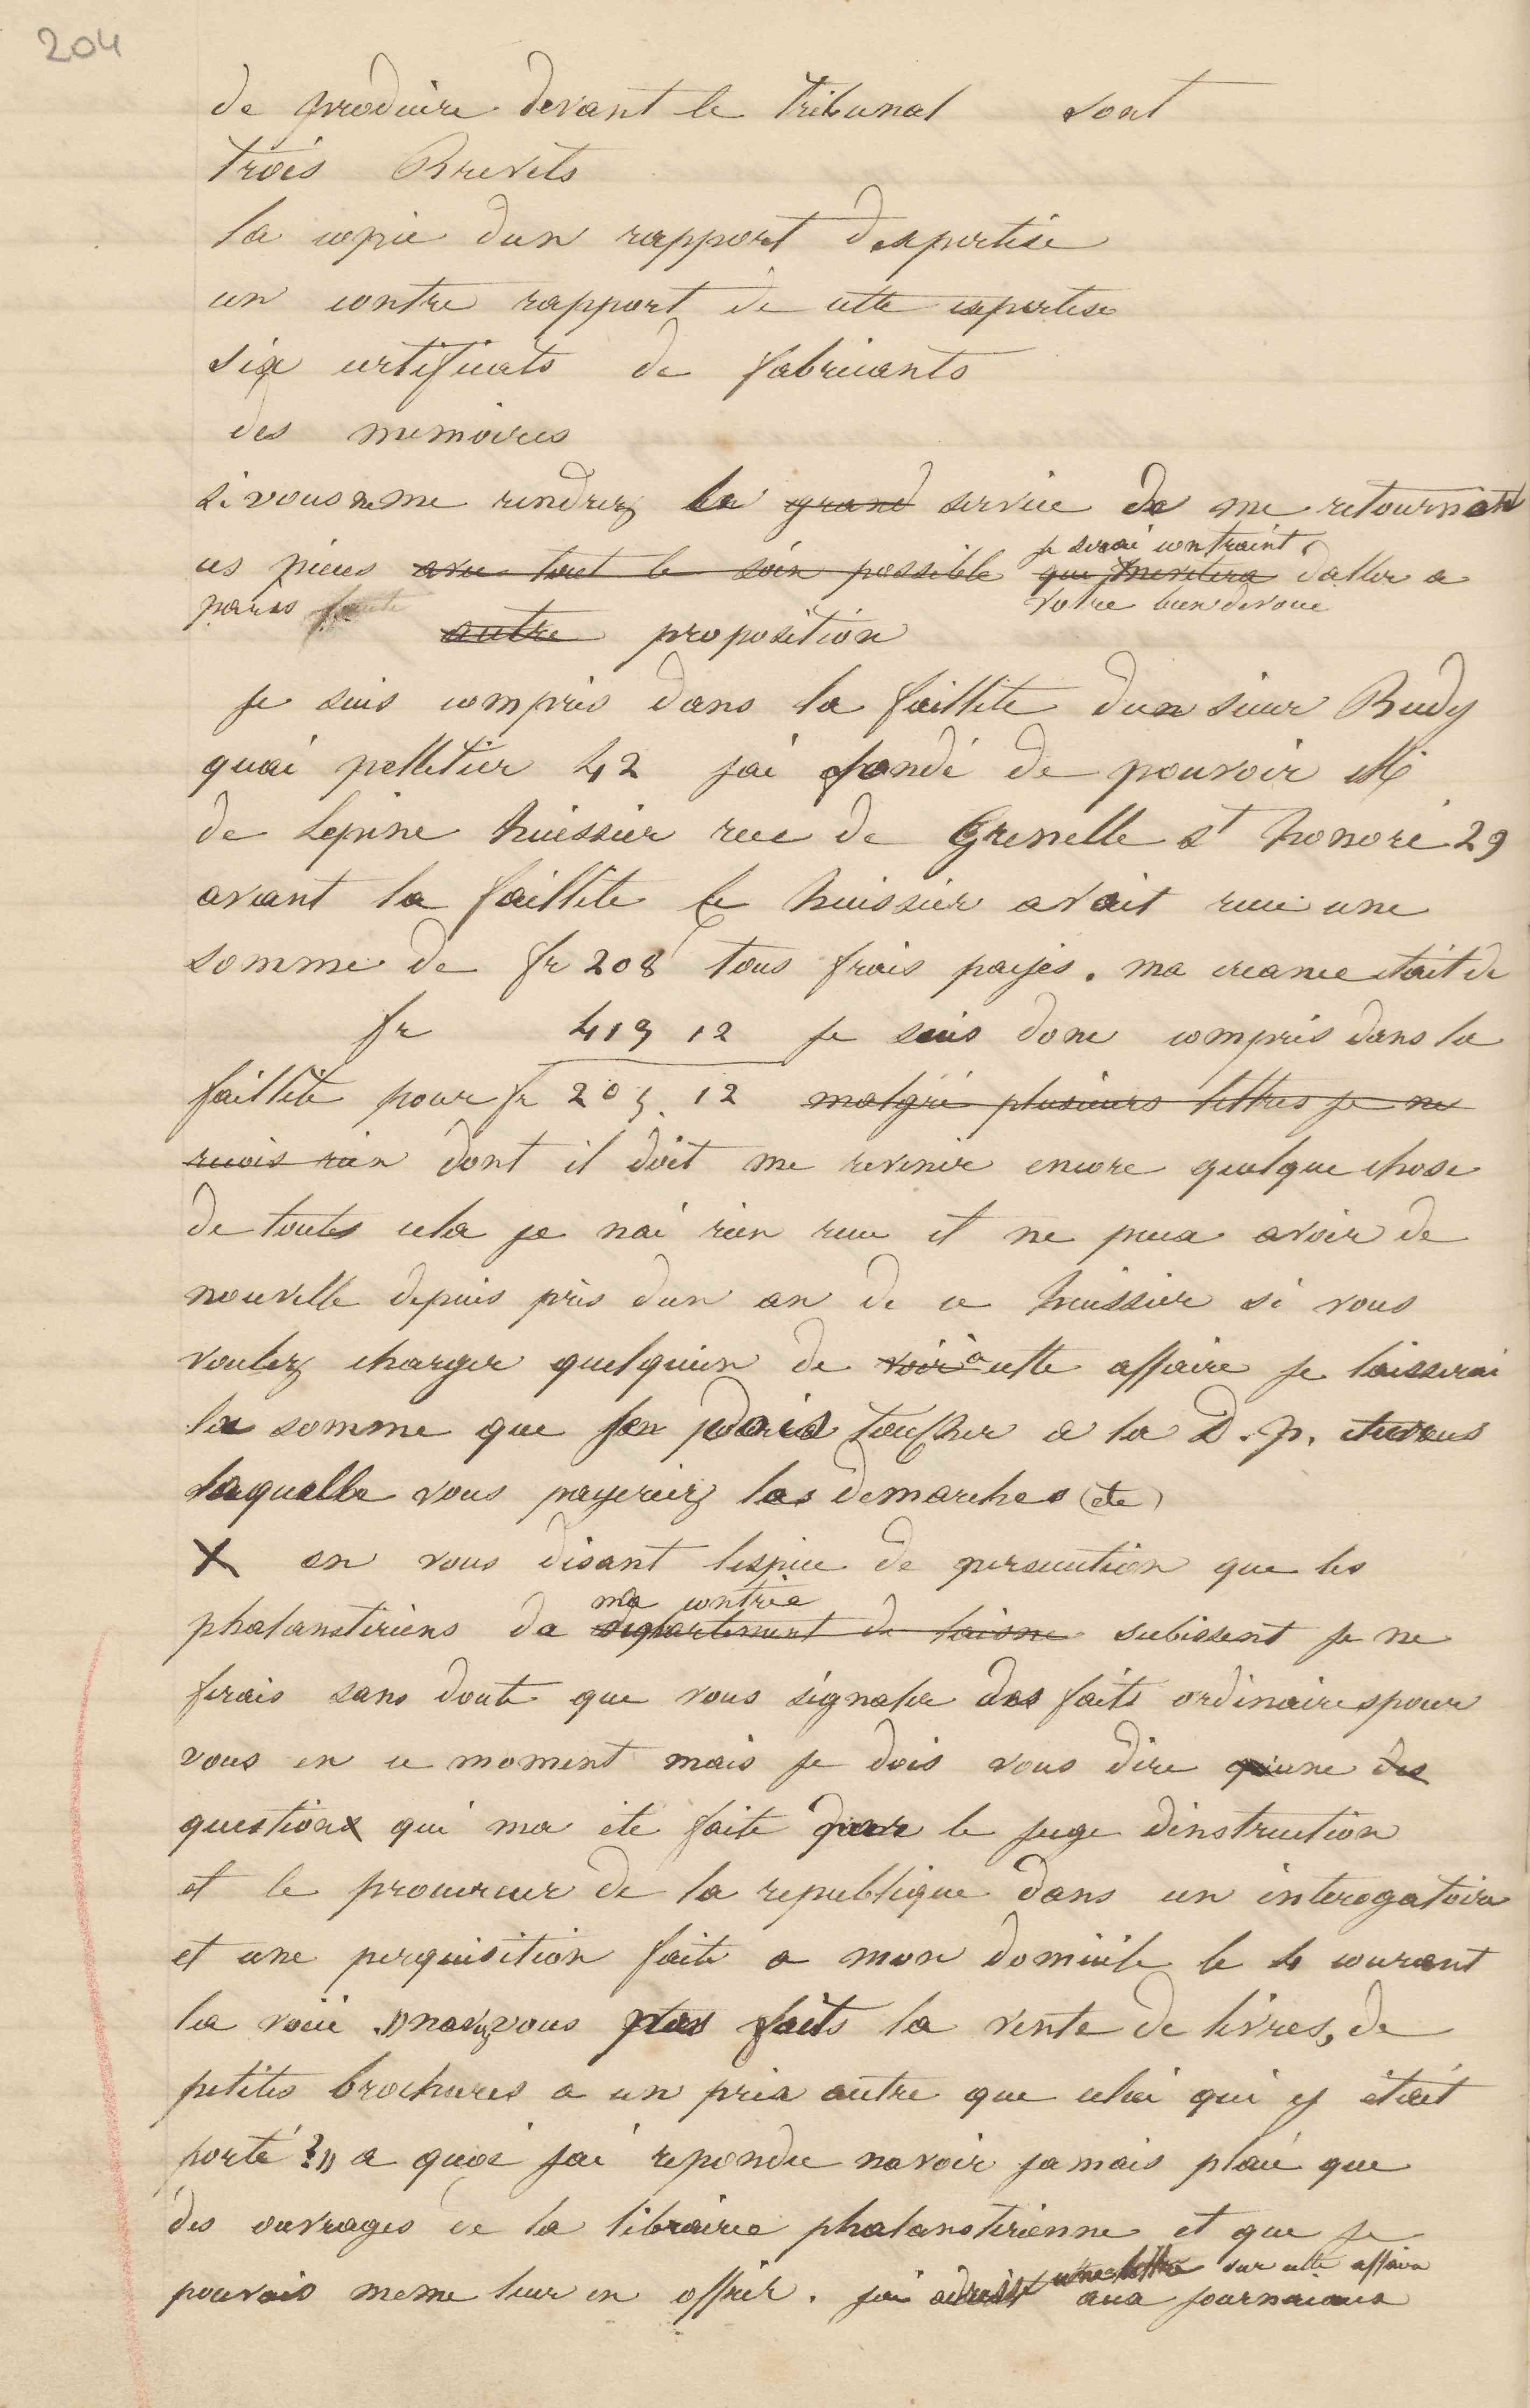 204
de produire devant le tribunal sont
trois Brevets
la copie dun rapport dexpertise
un contre rapport de cette expertise
six certificats de fabricants
des memoires
si vous ne me rendrez le grand service de me retourner
je serai contraint
ces pieces avec tout le soin possible que mevitera daller a
paris faute votre bien devoué
autre proposition
je suis compris dans la faillite dun sieur Budy
quai pelletier 42 jai fondé de pouvoir Mr
de Lepine huissier rue de Grenelle st honoré 29
avant la faillite le huissier avait recu une
somme de fr 208 tous frais payes. ma creance etait de
fr 413 12 je suis donc compris dans la
faillite pour fr 205. 12 malgré plusieurs lettres je ne
recois rien dont il doit me revenir encore quelque chose
de toutes cela je nai rien recu et ne peux avoir de
nouvelle depuis près dun an de ce huissier si vous
voulez charger quelquun de voir à cette affaire je laisserai
la somme que jen dois toucher a la D. p.
laquelle vous payeriez les demarches (etc)
X en vous disant lespece de persecution que les
ma contrée
phalansteriens de departement de laisne subissent je ne
ferais sans doute que vous signaler des faits ordinaires pour
vous en ce moment mais je dois vous dire quune des
questions qui ma ete faite par le juge dinstruction
et le procureur de la republique dans un interogatoire
et une perquisition faite a mon domicile le 4 courant
la voici » navez vous pas faits la vente de livres, de
petites brochures a un prix autre que celui qui y était
porté ? » a quoi jai repondu navoir jamais placé que
des ouvrages de la librairie phalansterienne et que je
une lettre sur cette affaire
pouvais meme leur en offrir. jai adressé aux journaux